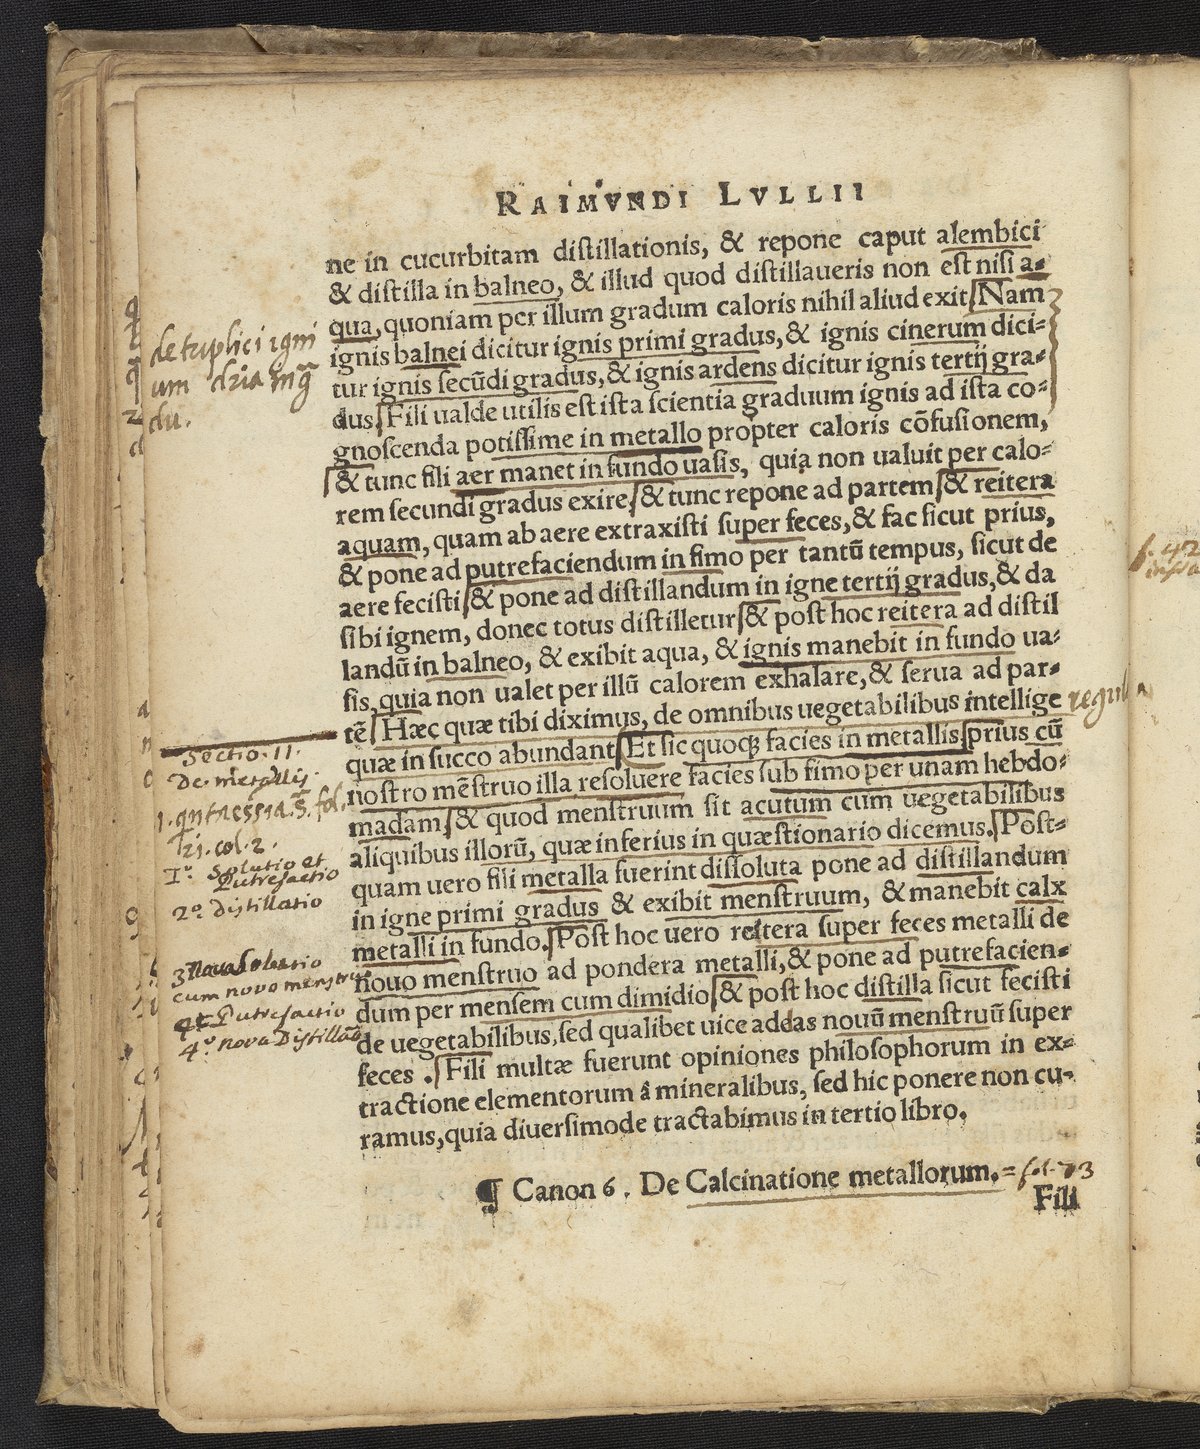 RAIMVNDI LVLLII
ne in cucurbitam distillationis, & repone caput alembici
& distilla in balneo, & illud quod distillaueris non est nisi a-
qua, quoniam per illum gradum caloris nihil aliud exit. Nam
ignis balnei dicitur ignis primi gradus, & ignis cinerum dici-
tur ignis secũdi gradus, & ignis ardens dicitur ignis tertij gra-
dus. Fili ualde utilis est ista scientia graduum ignis ad ista co-
gnoscenda potissime in metallo propter caloris cõfusionem,
& tunc fili aer manet in fundo uasis, quia non ualuit per calo-
rem secundi gradus exire, & tunc repone ad partem, & reitera
aquam, quam ab aere extraxisti super feces, & fac sicut prius,
& pone ad putrefaciendum in fimo per tantũ tempus, sicut de
aere fecisti, & pone ad distillandum in igne tertij gradus, & da
sibi ignem, donec totus distilletur, & post hoc reitera ad distil
landũ in balneo, & exibit aqua, & ignis manebit in fundo ua-
sis, quia non ualet per illũ calorem exhalare, & serua ad par-
tẽ. Hæc quæ tibi diximus, de omnibus uegetabilibus intellige
quæ in succo abundant. Et sic quoq; facies in metallis, prius cũ
nostro mẽstruo illa resoluere facies sub fimo per unam hebdo-
madam, & quod menstruum sit acutum cum uegetabilibus
aliquibus illorũ, quæ inferius in quæstionario dicemus. Post-
quam uero fili metalla fuerint dissoluta pone ad distillandum
in igne primi gradus & exibit menstruum, & manebit calx
metalli in fundo. Post hoc uero reitera super feces metalli de
nouo menstruo ad pondera metalli, & pone ad putrefacien-
dum per mensem cum dimidio, & post hoc distilla sicut fecisti
de uegetabilibus, sed qualibet uice addas nouũ menstruũ super
feces . Fili multæ fuerunt opiniones philosophorum in ex-
tractione elementorum â mineralibus, sed hic ponere non cu-
ramus, quia diuersimode tractabimus in tertio libro.
¶ Canon 6. De Calcinatione metallorum. = fol. 73
Fili
de tuplici igni
um
du.
regula
Sectio. 11.
De metallis.
21. col. 2.
1º. Solutio et
Putrefactio
2º. Distillatio
3 Nova Solutio
cum novo menstruo
Putrefactio
4º. nova Distillatio
f. 42